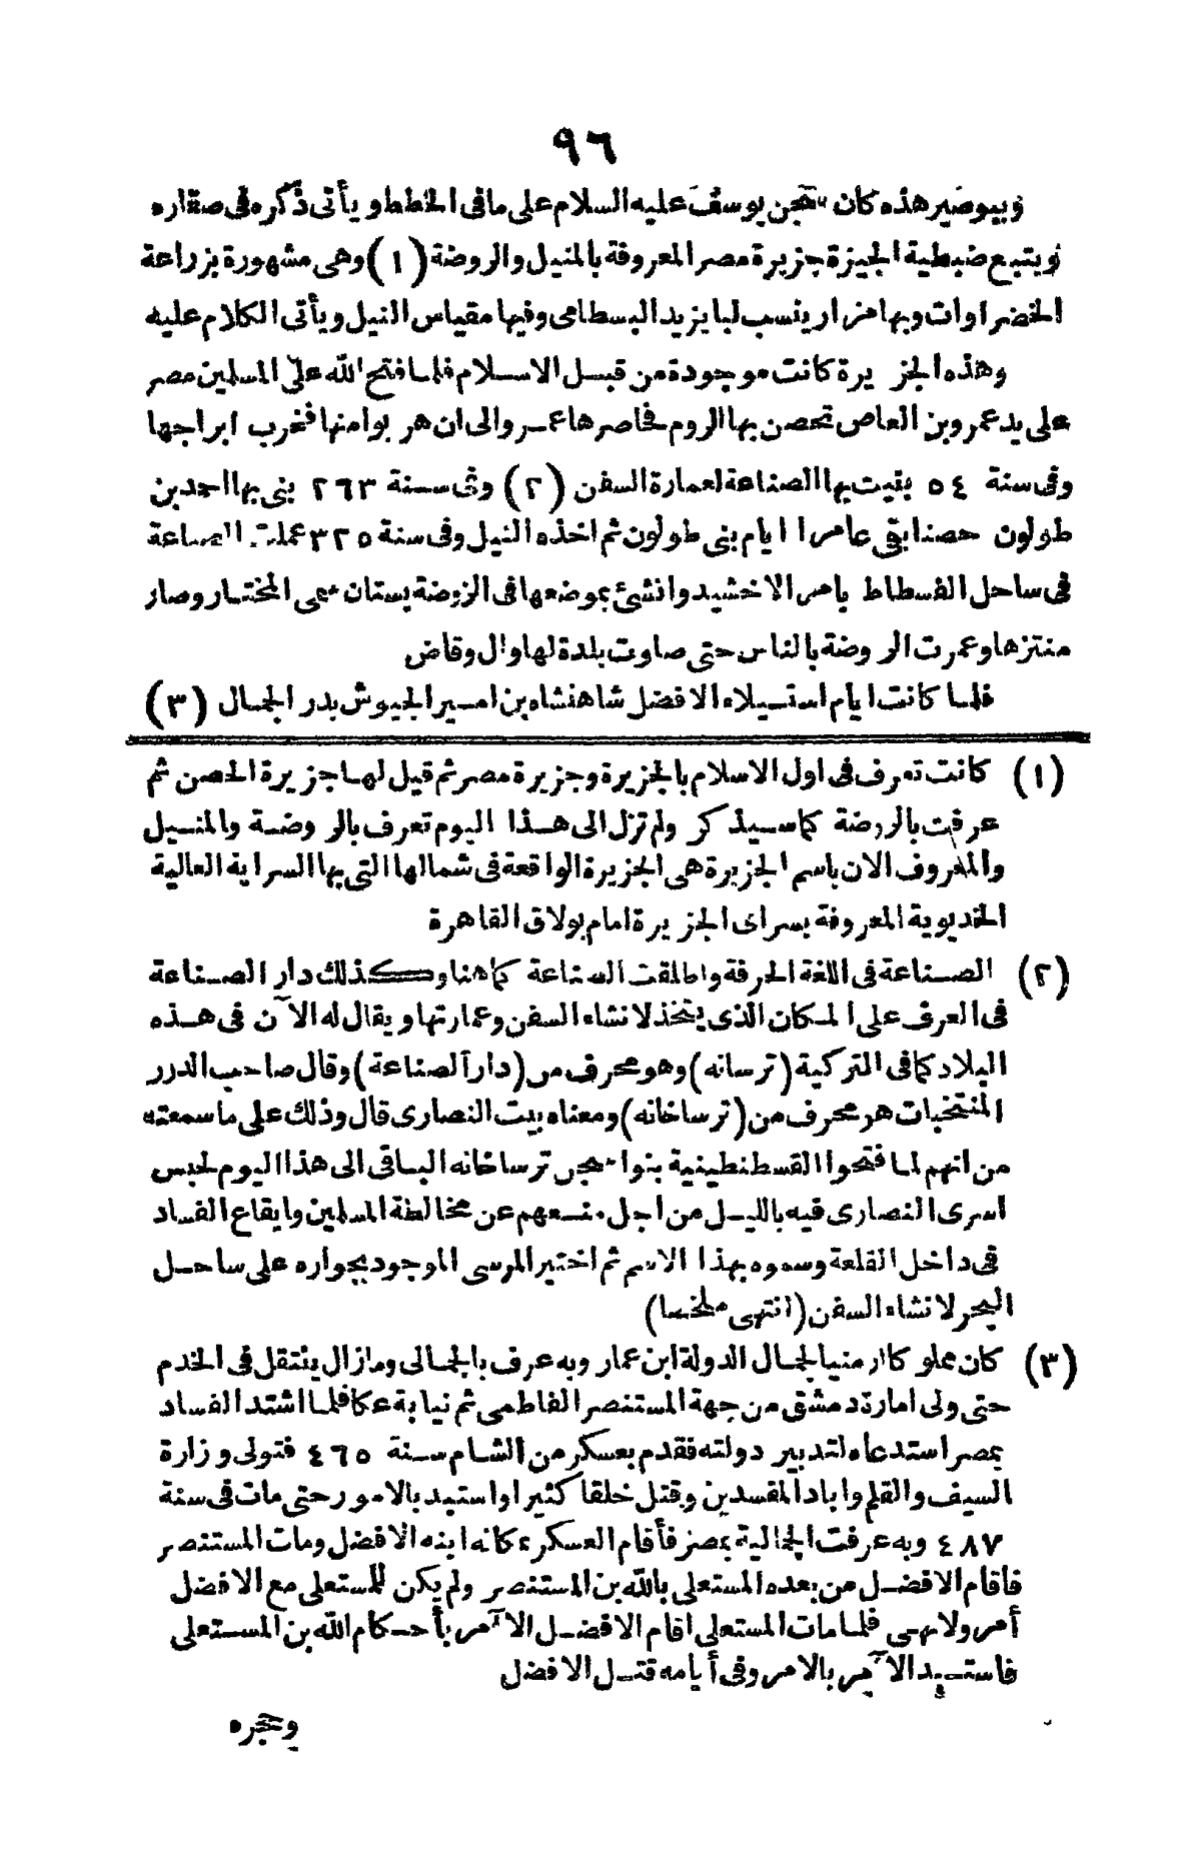 ٩٦
وببوصير هذه كان سجن يوسف عليه السلام على ما فى الخطط ويأتى ذكره فى صقاره
ويتبع ضبطية الجيزة جزيرة مصر المعروفة بالمنيل والروضة (١) وهى مشهورة بزراعة
الخضراوات وبها مزار ينسب لبايزيد البسطامى وفيها مقياس النيل ويأتى الكلام عليه
وهذه الجزيرة كانت موجودة من قبل الاسلام فلما فتح الله على المسلمين مصر
على يد عمرو بن العاص تحصن بها الروم فحاصرها عمرو الى ان هربوا منها فخرب ابراجها
وفى سنة ٥٤ بنيت بها الصناعة لعمارة السفن (٢) وفى سنة ٢٦٣ بنى بها احمد بن
طولون حصنا بقى عامرا ايام بنى طولون ثم اخذه النيل وفى سنة ٣٢٥ عملت الصناعة
فى ساحل الفسطاط بامر الاخشيد وانشئ بموضعها فى الروضة بستان سمى المختار وصار
منتزها وعمرت الروضة بالناس حتى صارت بلدة لها وال وقاض
فلما كانت ايام استيلاء الافضل شاهنشاه بن امير الجيوش بدر الجمال (٣)
(١) كانت تعرف فى اول الاسلام بالجزيرة وجزيرة مصر ثم قيل لها جزيرة الحصن ثم
عرفت بالروضة كما سيذكر ولم تزل الى هذا اليوم تعرف بالروضة والمنيل
والمعروف الان باسم الجزيرة هى الجزيرة الواقعة فى شمالها التى بها السراية العالية
الخديوية المعروفة بسراى الجزيرة امام بولاق القاهرة
(٢) الصناعة فى اللغة الحرفة واطلقت الصناعة كما هنا وكذلك دار الصناعة
فى العرف على المكان الذى يتخذ لانشاء السفن وعمارتها ويقال له الآن فى هذه
البلاد كما فى التركية (ترسانه) وهو محرف من (دار الصناعة) وقال صاحب الدرر
المنتخبات هو محرف من (ترساخانه) ومعناه بيت النصارى قال وذلك على ما سمعته
من انهم لما فتحوا القسطنطينية بنوا سجن ترساخانه الباقى الى هذا اليوم لحبس
اسرى النصارى فيه بالليل من اجل منعهم عن مخالطة المسلمين وايقاع الفساد
فى داخل القلعة وسموه بهذا الاسم ثم اختير المرسى الموجود بجواره على ساحل
البحر لانشاء السفن (انتهى ملخصا)
(٣) كان مملوكا ارمنيا لجمال الدولة ابن عمار وبه عرف بالجمالى وما زال ينتقل فى الخدم
حتى ولى امارة دمشق من جهة المستنصر الفاطمى ثم نيابة عكا فلما اشتد الفساد
بمصر استدعاه لتدبير دولته فقدم بعسكر من الشام سنة ٤٦٥ فتولى وزارة
السيف والقلم واباد المفسدين وقتل خلقا كثيرا واستبد بالامور حتى مات فى سنة
٤٨٧ وبه عرفت الجمالية بمصر فأقام العسكر مكانه ابنه الافضل ومات المستنصر
فاقام الافضل من بعده المستعلى بالله بن المستنصر ولم يكن للمستعلى مع الافضل
أمر ولا نهى فلما مات المستعلى اقام الافضل الآمر بأحكام الله بن المستعلى
فاستبد الآمر بالامر وفى أيامه قتل الافضل
وحجره